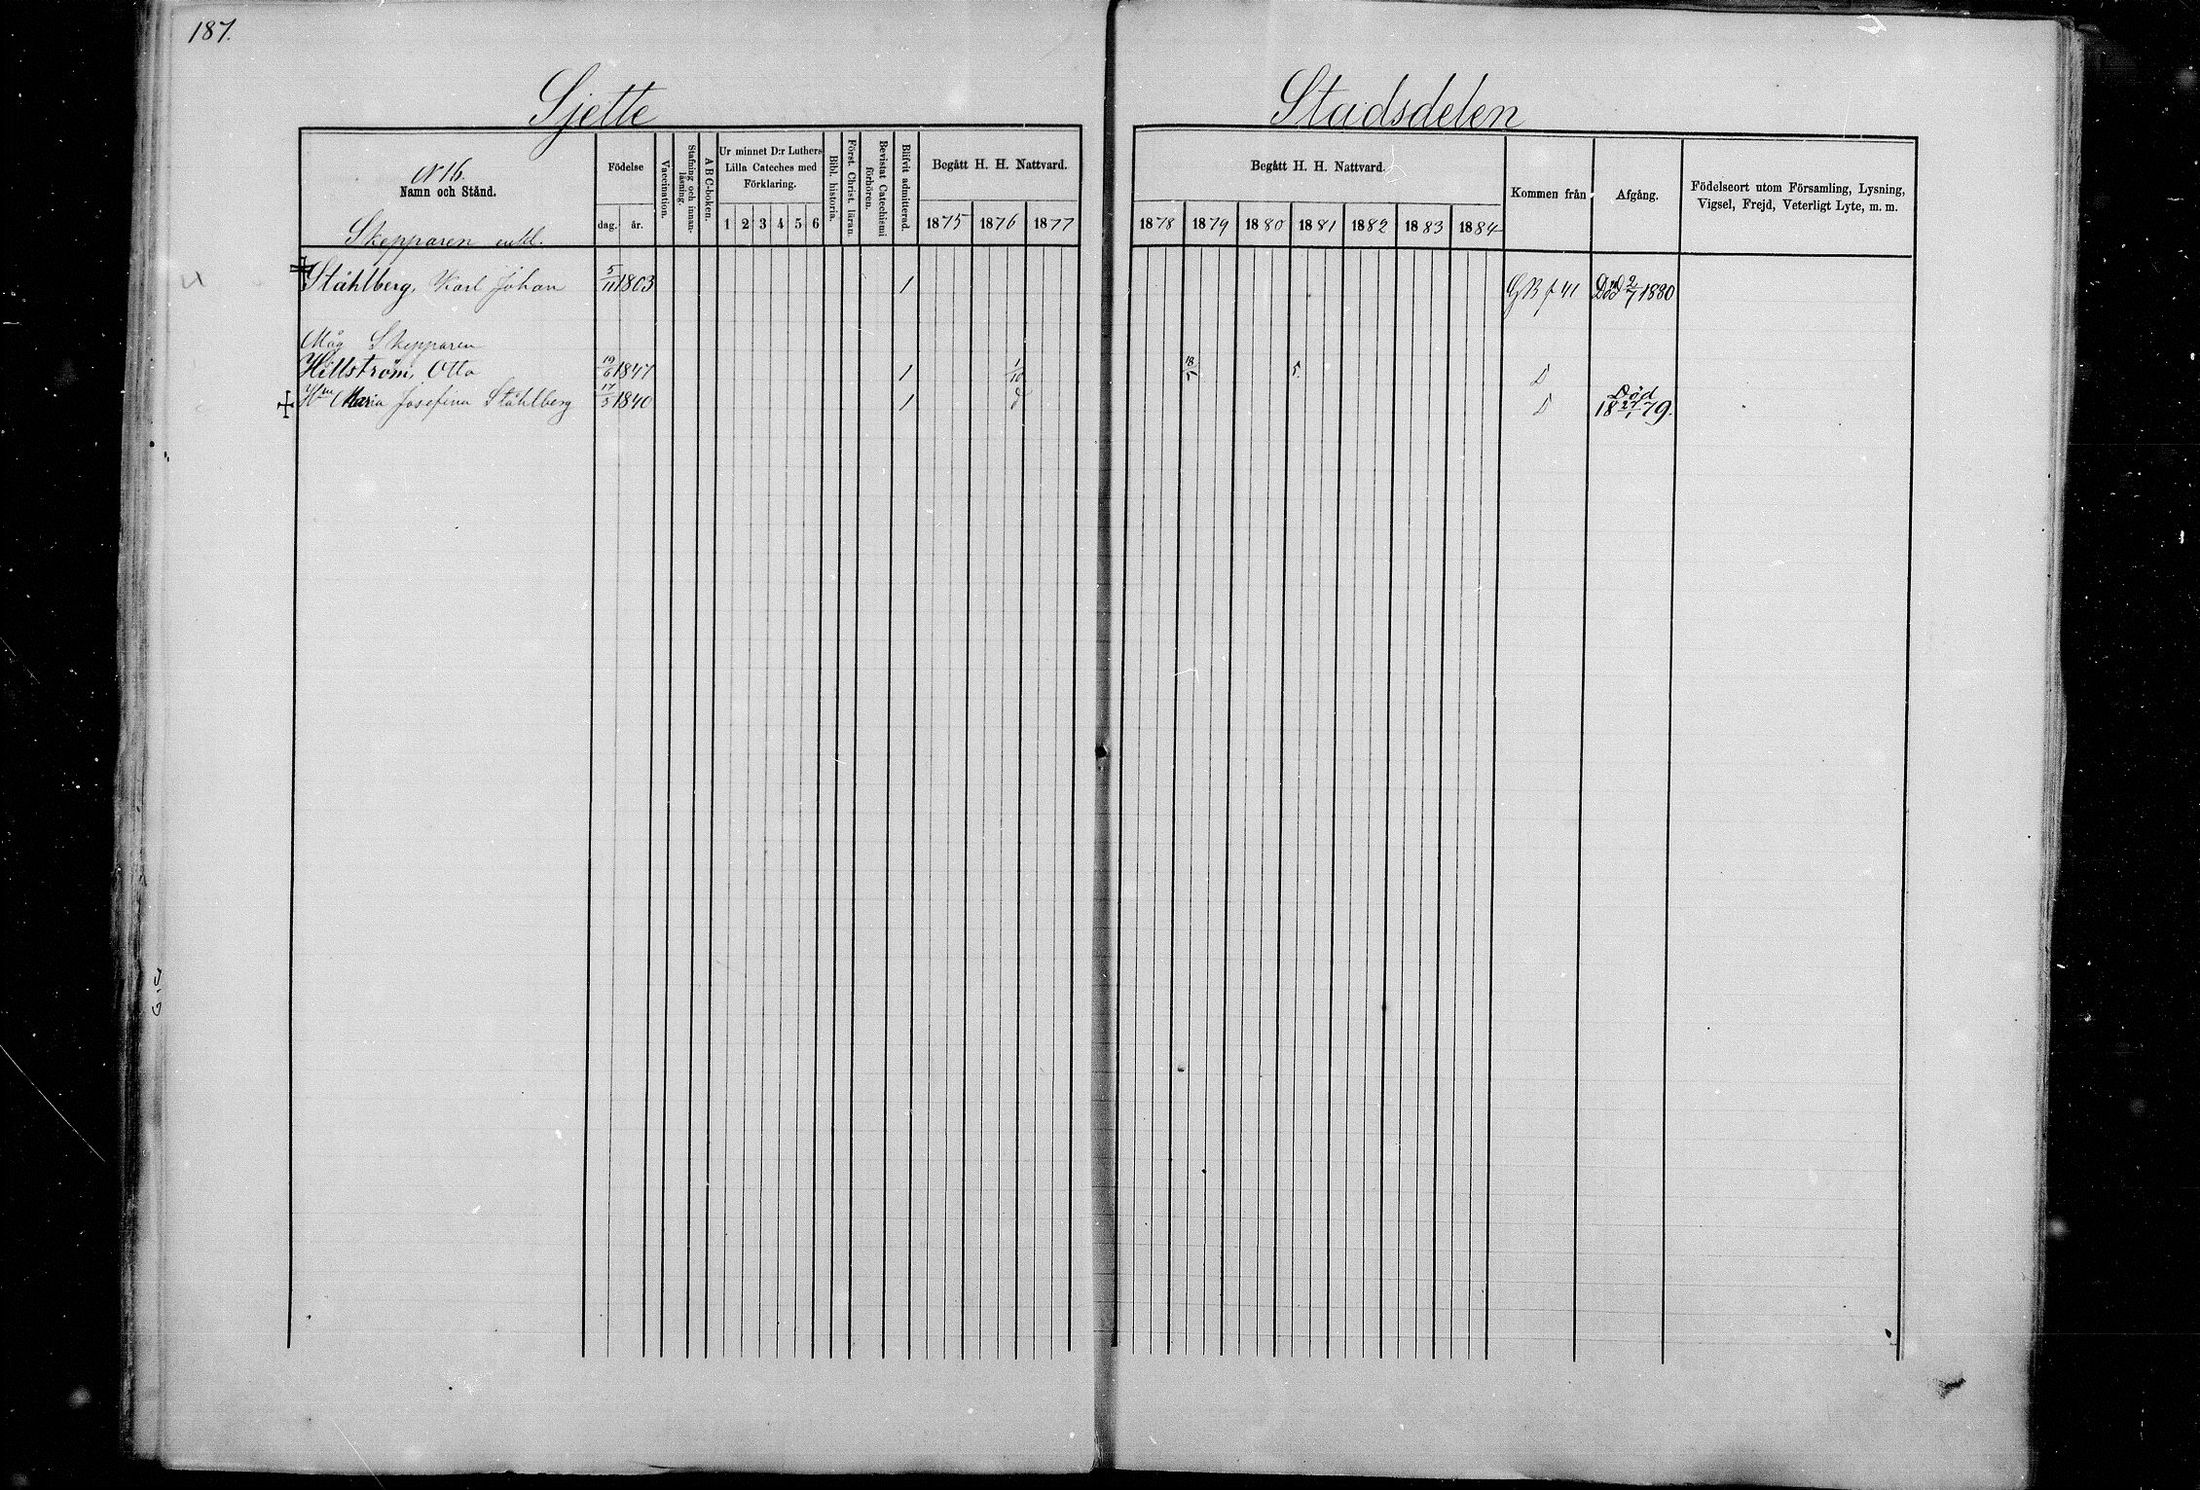 187.
Sjette Stadsdelen
N 16.
Namn och Stånd.
Skepparen enkl.
Födelse
dag. år.
Vaccination.
Stafning och innan-
läsning.
A B C-boken.
Ur minnet D:r Luthers
Lilla Cateches med
Förklaring.
1 2 3 4 5 6
Bibl. historia.
Först. Christ. läran.
Bevistat Catechismi
förhören.
Blifvit admitterad.
Begått H. H. Nattvard.
1875 1876 1877
Begått H. H. Nattvard.
1878 1879 1880 1881 1882 1883 1884
Kommen från
Afgång.
Födelseort utom Församling, Lysning,
Vigsel, Frejd, Veterligt Lyte, m. m.
Ståhlberg, Karl Johan 5/11 1803 1 GB f 41 Död 2/7 1880
Måg Skepparen
Hellström, Otto 19/6 1847 1 1/10 18/5 5 D
Hm Maria Josefina Ståhlberg 17/3 1840 1 d D Död
18 27/1 79.